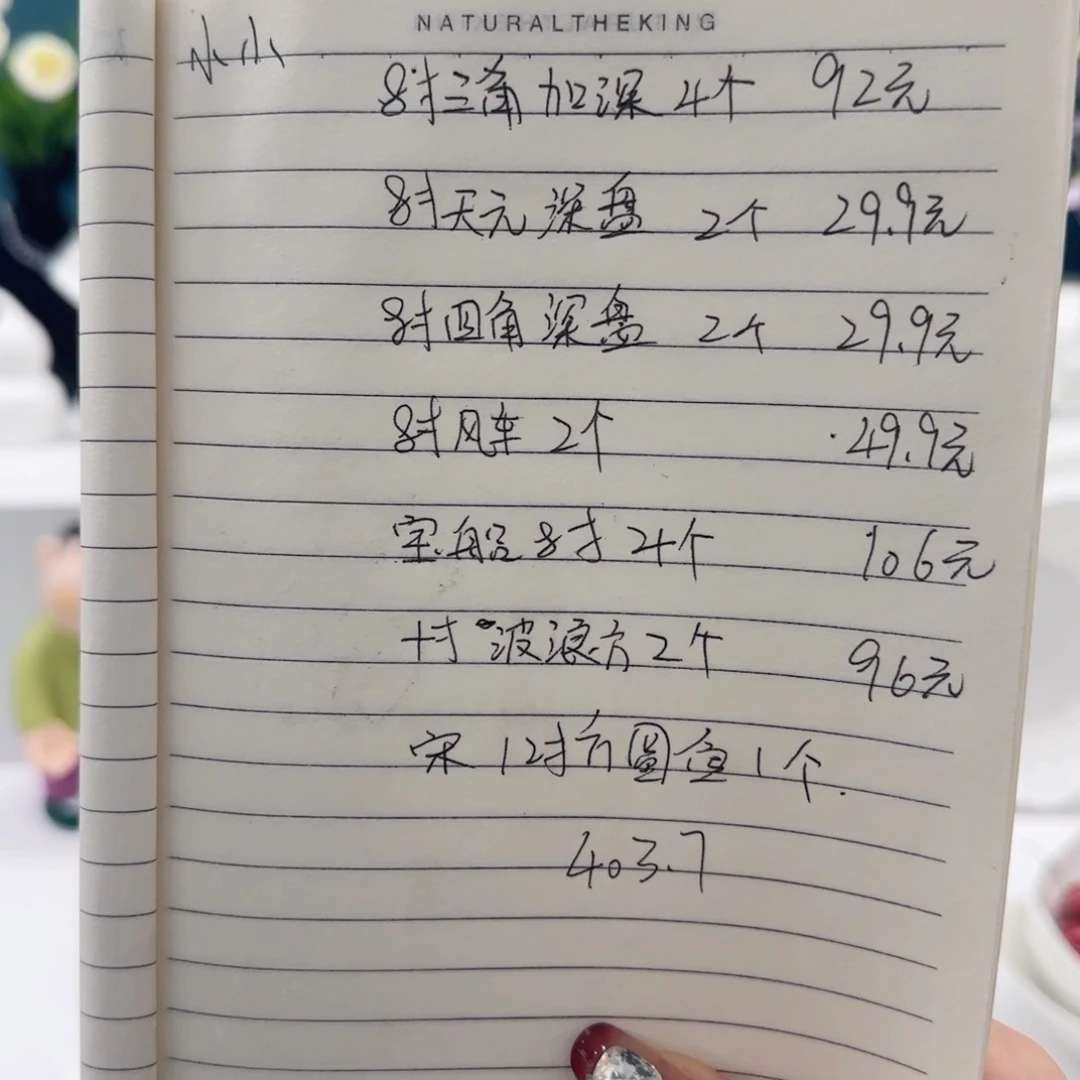 NATURALTHEKING
小小
8寸三角加深 4个 92元
8寸天元深盘 2个 29.9元
8寸四角深盘 2个 29.9元
8寸风车 2个 49.9元
宝船8寸 24个 106元
十寸波浪方2个 96元
宋12寸方圆鱼1个.
403.7